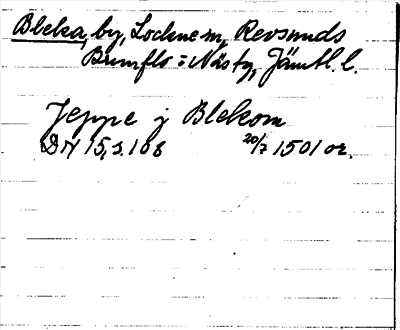 Bleka, by, Lockne sn, Revsunds
Brunflo o Näs tg, Jämtl. l.
Jeppe j Blekom
DN 15, s. 108 20/7 1501 or.